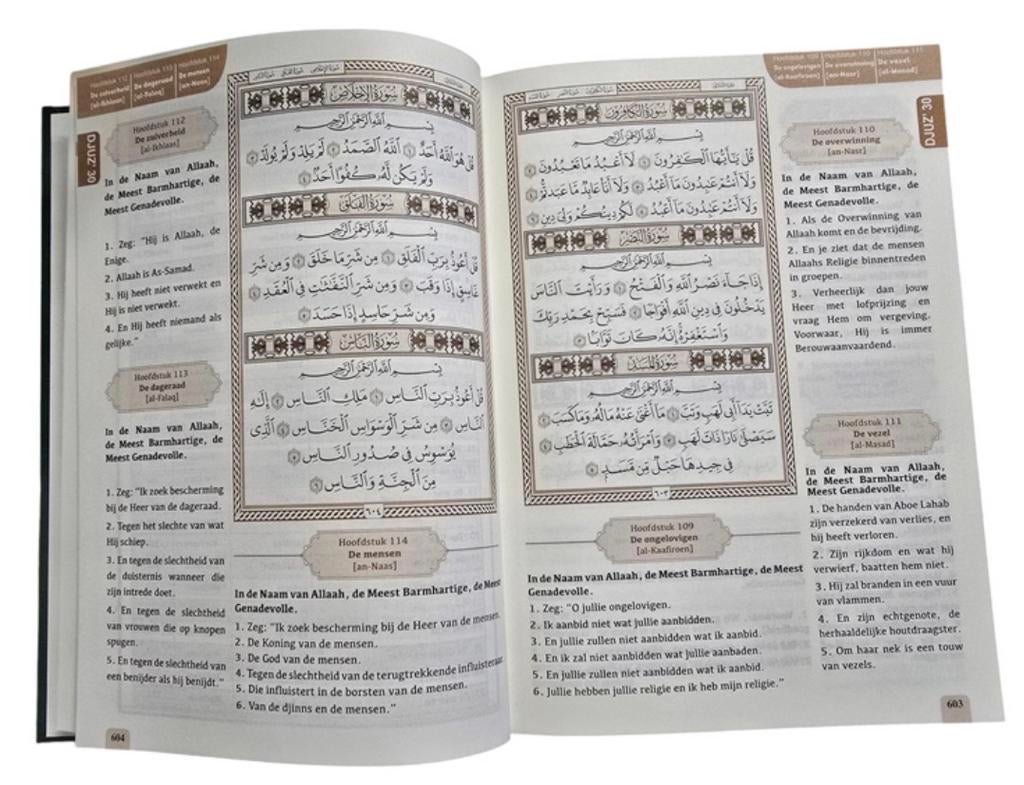 Hoofdstuk 109
De ongelovigen
[al-Kaafiroen]
Hoofdstuk 110
De overwinning
[an-Nasr]
Hoofdstuk 111
De vezel
[al-Masad]
DJUZ' 30
سُورَةُ الكَافِرُونَ
بِسْمِ اللَّهِ الرَّحْمَٰنِ الرَّحِيمِ
قُلْ يَٰٓأَيُّهَا ٱلْكَٰفِرُونَ ١ لَآ أَعْبُدُ مَا تَعْبُدُونَ ٢
وَلَآ أَنتُمْ عَٰبِدُونَ مَآ أَعْبُدُ ٣ وَلَآ أَنَا۠ عَابِدٌ مَّا عَبَدتُّمْ ٤
وَلَآ أَنتُمْ عَٰبِدُونَ مَآ أَعْبُدُ ٥ لَكُمْ دِينُكُمْ وَلِيَ دِينِ ٦
سُورَةُ النَّصْرِ
بِسْمِ اللَّهِ الرَّحْمَٰنِ الرَّحِيمِ
إِذَا جَآءَ نَصْرُ ٱللَّهِ وَٱلْفَتْحُ ١ وَرَأَيْتَ ٱلنَّاسَ
يَدْخُلُونَ فِي دِينِ ٱللَّهِ أَفْوَاجًا ٢ فَسَبِّحْ بِحَمْدِ رَبِّكَ
وَٱسْتَغْفِرْهُ إِنَّهُۥ كَانَ تَوَّابًۢا ٣
سُورَةُ المَسَدِ
بِسْمِ اللَّهِ الرَّحْمَٰنِ الرَّحِيمِ
تَبَّتْ يَدَآ أَبِي لَهَبٍ وَتَبَّ ١ مَآ أَغْنَىٰ عَنْهُ مَالُهُۥ وَمَا كَسَبَ ٢
سَيَصْلَىٰ نَارًا ذَاتَ لَهَبٍ ٣ وَٱمْرَأَتُهُۥ حَمَّالَةَ ٱلْحَطَبِ ٤
فِي جِيدِهَا حَبْلٌ مِّن مَّسَدٍۭ ٥
٦٠٣
Hoofdstuk 109
De ongelovigen
[al-Kaafiroen]
In de Naam van Allaah, de Meest Barmhartige, de Meest
Genadevolle.
1. Zeg: "O jullie ongelovigen.
2. Ik aanbid niet wat jullie aanbidden.
3. En jullie zullen niet aanbidden wat ik aanbid.
4. En ik zal niet aanbidden wat jullie aanbaden.
5. En jullie zullen niet aanbidden wat ik aanbid.
6. Jullie hebben jullie religie en ik heb mijn religie."
Hoofdstuk 110
De overwinning
[an-Nasr]
In de Naam van Allaah,
de Meest Barmhartige, de
Meest Genadevolle.
1. Als de Overwinning van
Allaah komt en de bevrijding.
2. En je ziet dat de mensen
Allaahs Religie binnentreden
in groepen.
3. Verheerlijk dan jouw
Heer met lofprijzing en
vraag Hem om vergeving.
Voorwaar, Hij is immer
Berouwaanvaardend.
Hoofdstuk 111
De vezel
[al-Masad]
In de Naam van Allaah,
de Meest Barmhartige, de
Meest Genadevolle.
1. De handen van Aboe Lahab
zijn verzekerd van verlies, en
hij heeft verloren.
2. Zijn rijkdom en wat hij
verwierf, baatten hem niet.
3. Hij zal branden in een vuur
van vlammen.
4. En zijn echtgenote, de
herhaaldelijke houtdraagster.
5. Om haar nek is een touw
van vezels.
603
Hoofdstuk 112
De zuiverheid
[al-Ikhlaas]
Hoofdstuk 113
De dageraad
[al-Falaq]
Hoofdstuk 114
De mensen
[an-Naas]
DJUZ' 30
سُورَةُ الإِخْلَاصِ
بِسْمِ اللَّهِ الرَّحْمَٰنِ الرَّحِيمِ
قُلْ هُوَ ٱللَّهُ أَحَدٌ ١ ٱللَّهُ ٱلصَّمَدُ ٢ لَمْ يَلِدْ وَلَمْ يُولَدْ ٣
وَلَمْ يَكُن لَّهُۥ كُفُوًا أَحَدٌۢ ٤
سُورَةُ الفَلَقِ
بِسْمِ اللَّهِ الرَّحْمَٰنِ الرَّحِيمِ
قُلْ أَعُوذُ بِرَبِّ ٱلْفَلَقِ ١ مِن شَرِّ مَا خَلَقَ ٢ وَمِن شَرِّ
غَاسِقٍ إِذَا وَقَبَ ٣ وَمِن شَرِّ ٱلنَّفَّٰثَٰتِ فِي ٱلْعُقَدِ ٤
وَمِن شَرِّ حَاسِدٍ إِذَا حَسَدَ ٥
سُورَةُ النَّاسِ
بِسْمِ اللَّهِ الرَّحْمَٰنِ الرَّحِيمِ
قُلْ أَعُوذُ بِرَبِّ ٱلنَّاسِ ١ مَلِكِ ٱلنَّاسِ ٢ إِلَٰهِ
ٱلنَّاسِ ٣ مِن شَرِّ ٱلْوَسْوَاسِ ٱلْخَنَّاسِ ٤ ٱلَّذِي
يُوَسْوِسُ فِي صُدُورِ ٱلنَّاسِ ٥
مِنَ ٱلْجِنَّةِ وَٱلنَّاسِ ٦
٦٠٤
Hoofdstuk 112
De zuiverheid
[al-Ikhlaas]
In de Naam van Allaah, de
Meest Barmhartige, de
Meest Genadevolle.
1. Zeg: "Hij is Allaah, de
Enige.
2. Allaah is As-Samad.
3. Hij heeft niet verwekt en
Hij is niet verwekt.
4. En Hij heeft niemand als
gelijke."
Hoofdstuk 113
De dageraad
[al-Falaq]
In de Naam van Allaah,
de Meest Barmhartige, de
Meest Genadevolle.
1. Zeg: "Ik zoek bescherming
bij de Heer van de dageraad.
2. Tegen het slechte van wat
Hij schiep.
3. En tegen de slechtheid van
de duisternis wanneer die
zijn intrede doet.
4. En tegen de slechtheid
van vrouwen die op knopen
spugen.
5. En tegen de slechtheid van
een benijder als hij benijdt."
Hoofdstuk 114
De mensen
[an-Naas]
In de Naam van Allaah, de Meest Barmhartige, de Meest
Genadevolle.
1. Zeg: "Ik zoek bescherming bij de Heer van de mensen.
2. De Koning van de mensen.
3. De God van de mensen.
4. Tegen de slechtheid van de terugtrekkende influisteraar.
5. Die influistert in de borsten van de mensen.
6. Van de djinns en de mensen."
604